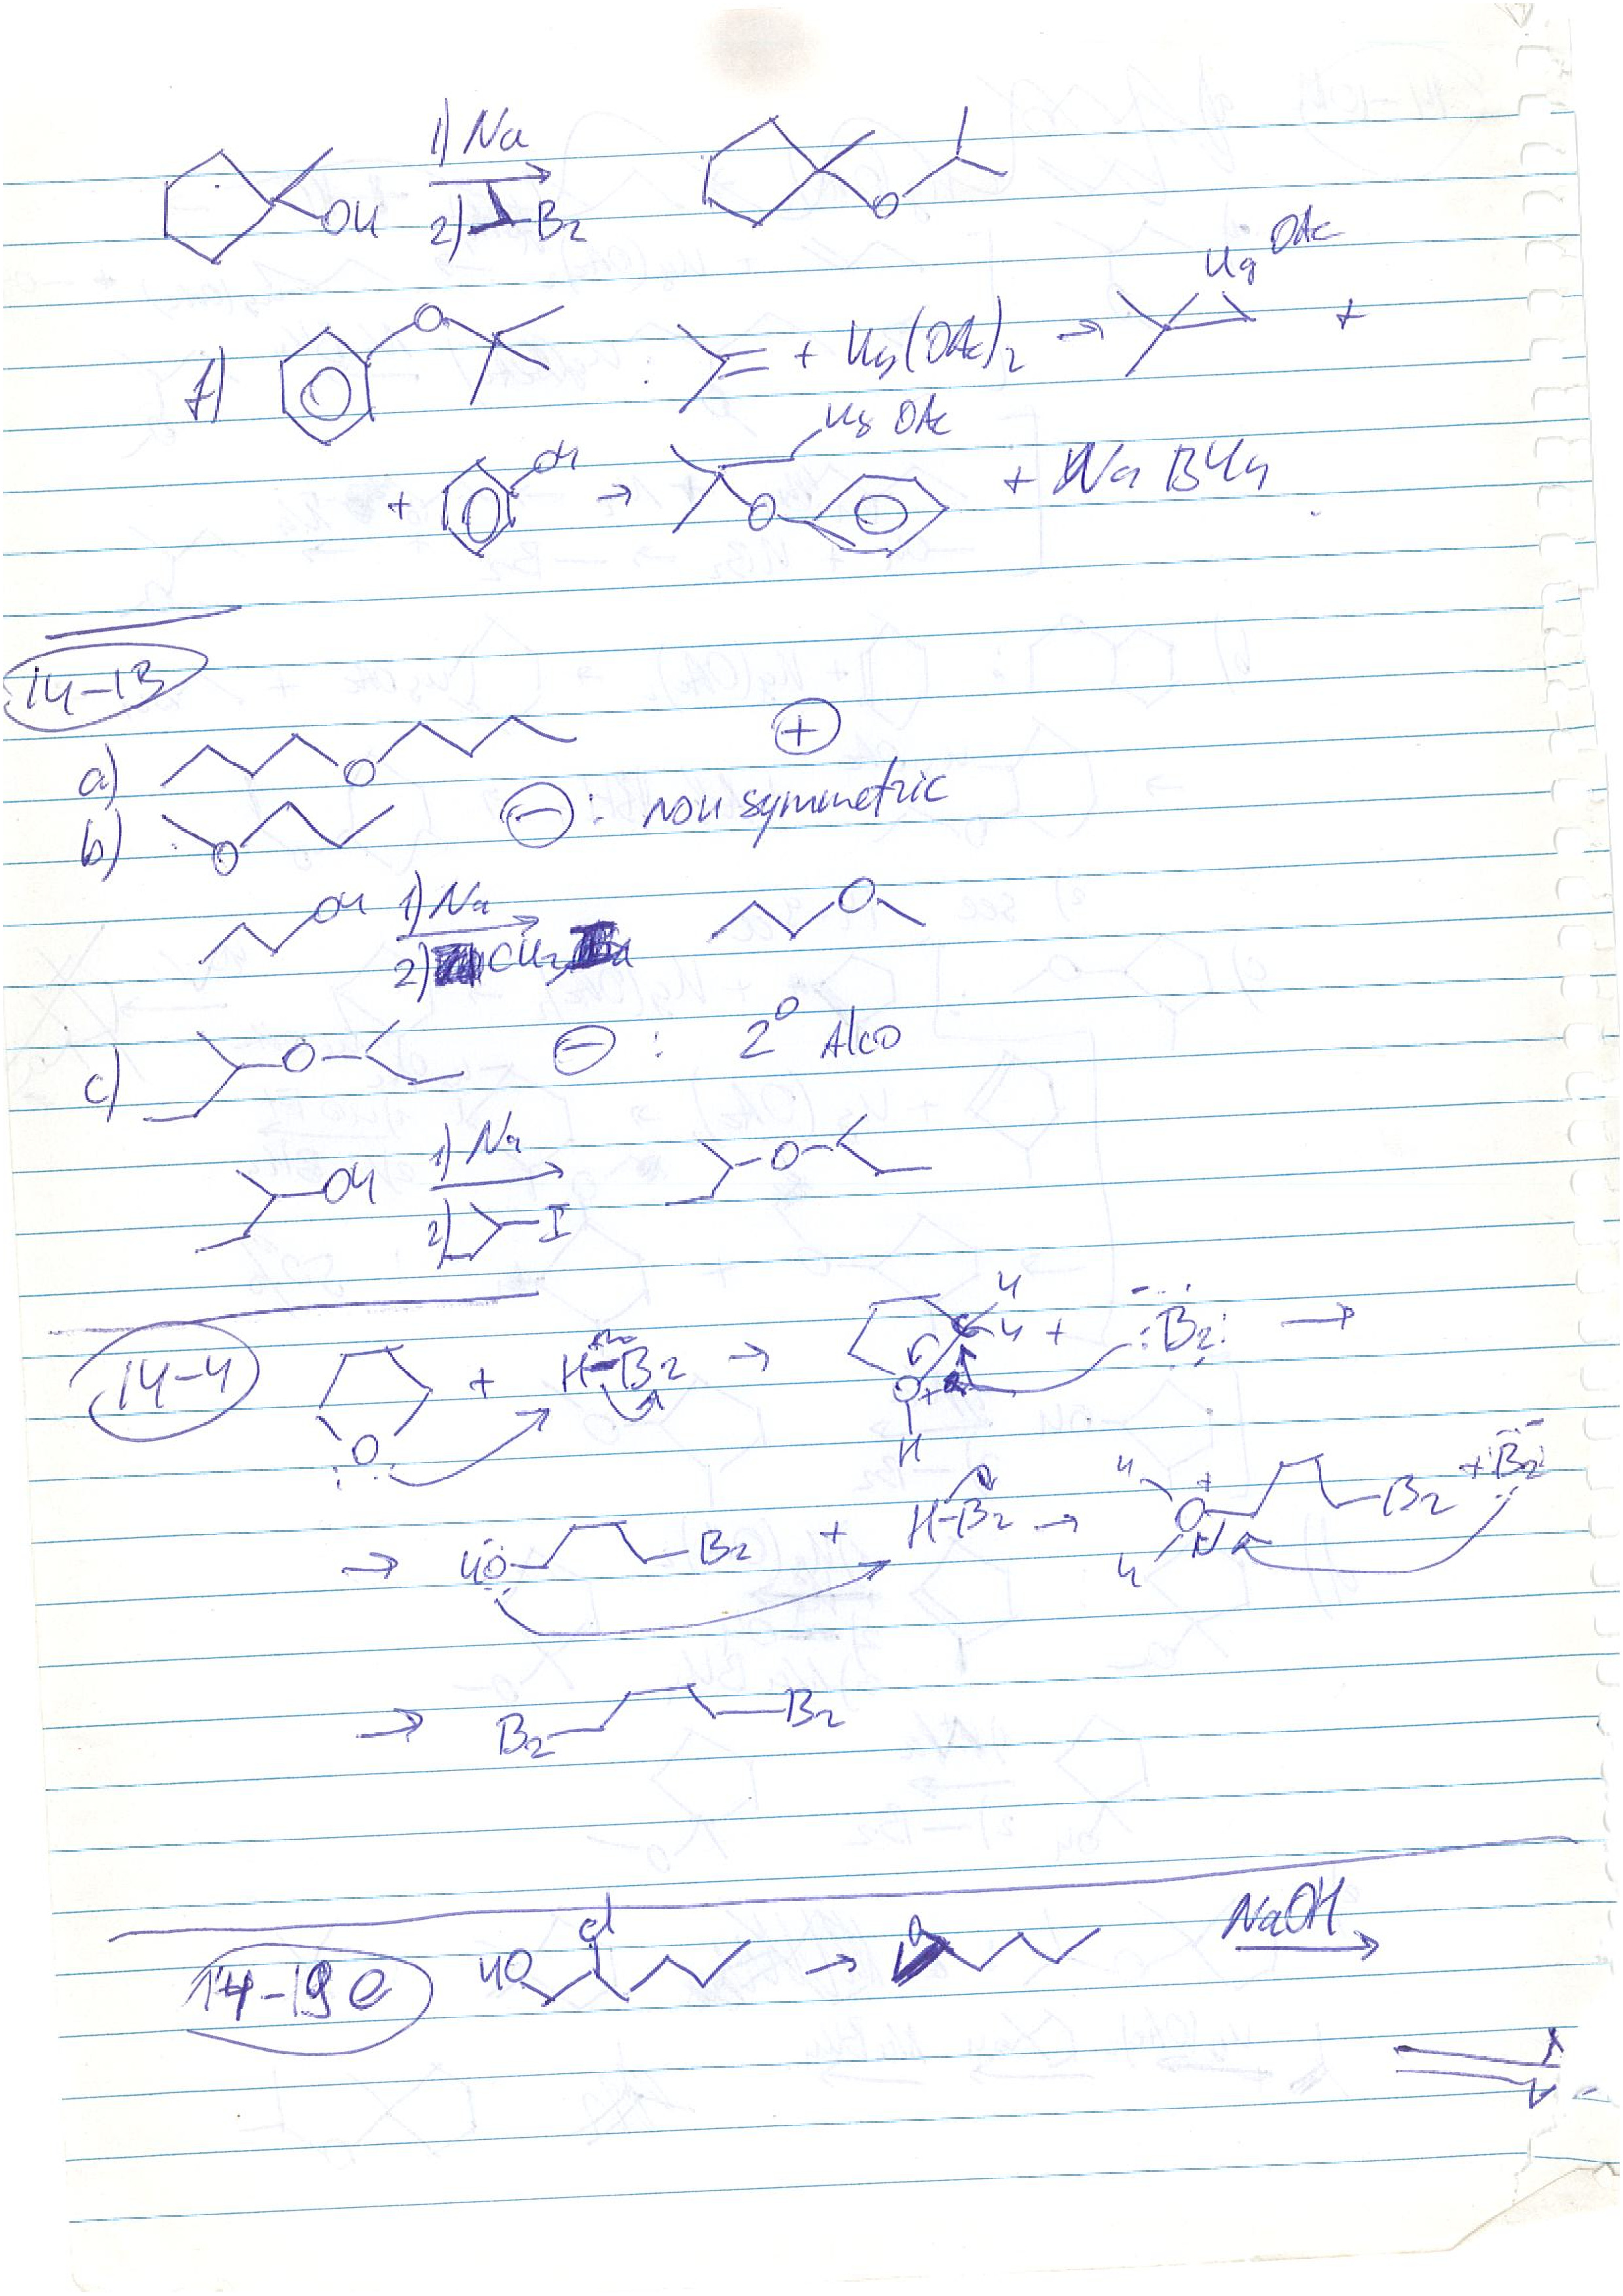 1) Na
OH
2) Br
O
Hg OAc
f) O + Hg(OAc)2 → +
HgOAc
+ OH → O + NaBH4
14-13
a) O +
b) O − : non symmetric
OH 1) Na O
2) CH3
c) O − : 2° Alco
OH 1) Na O
2) I
14-4 O: + H-Br → H H O+ H + :Br: →
→ HÖ Br + H-Br → H O+ H Br + Br
→ Br Br
14-19e HO Cl → O NaOH